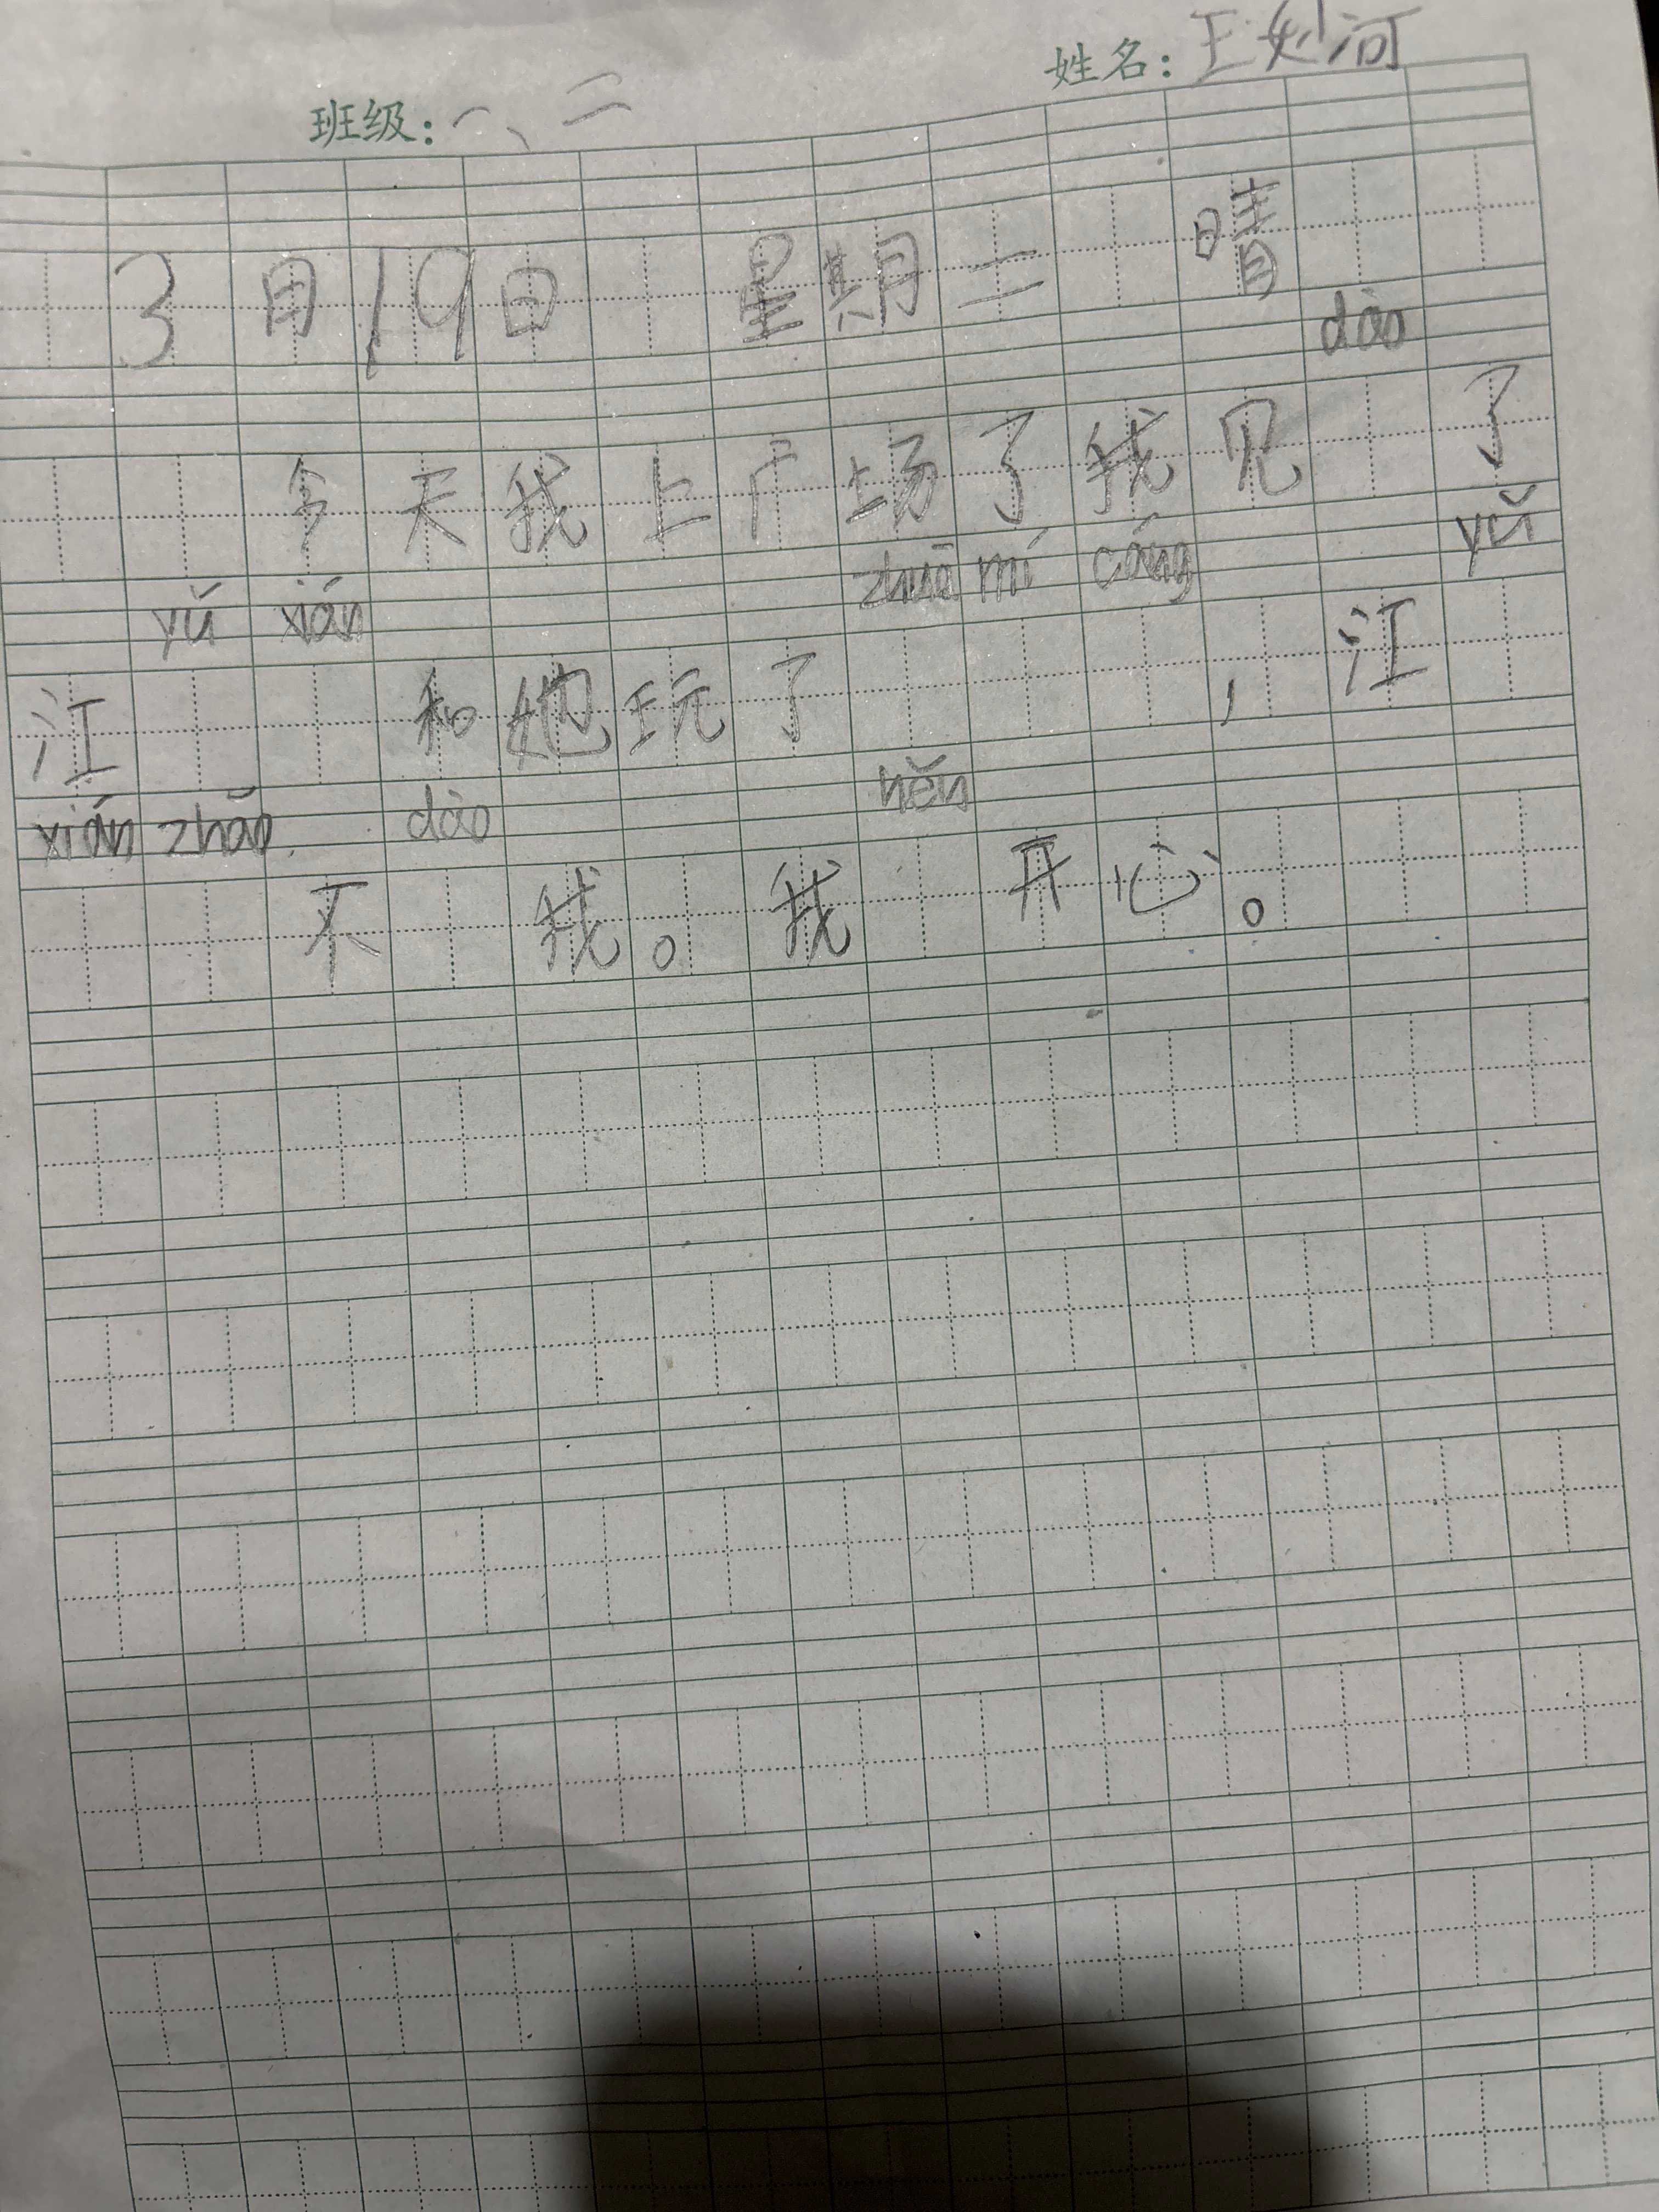 班级：一、二 姓名：王妙河
3月19日 星期二 晴
dào
今天我上广场了我见 了
yǔ xián zhuō mí cáng yǔ
江 和她玩了 ，江
xián zhǎo dào hěn
不 我。我 开心。